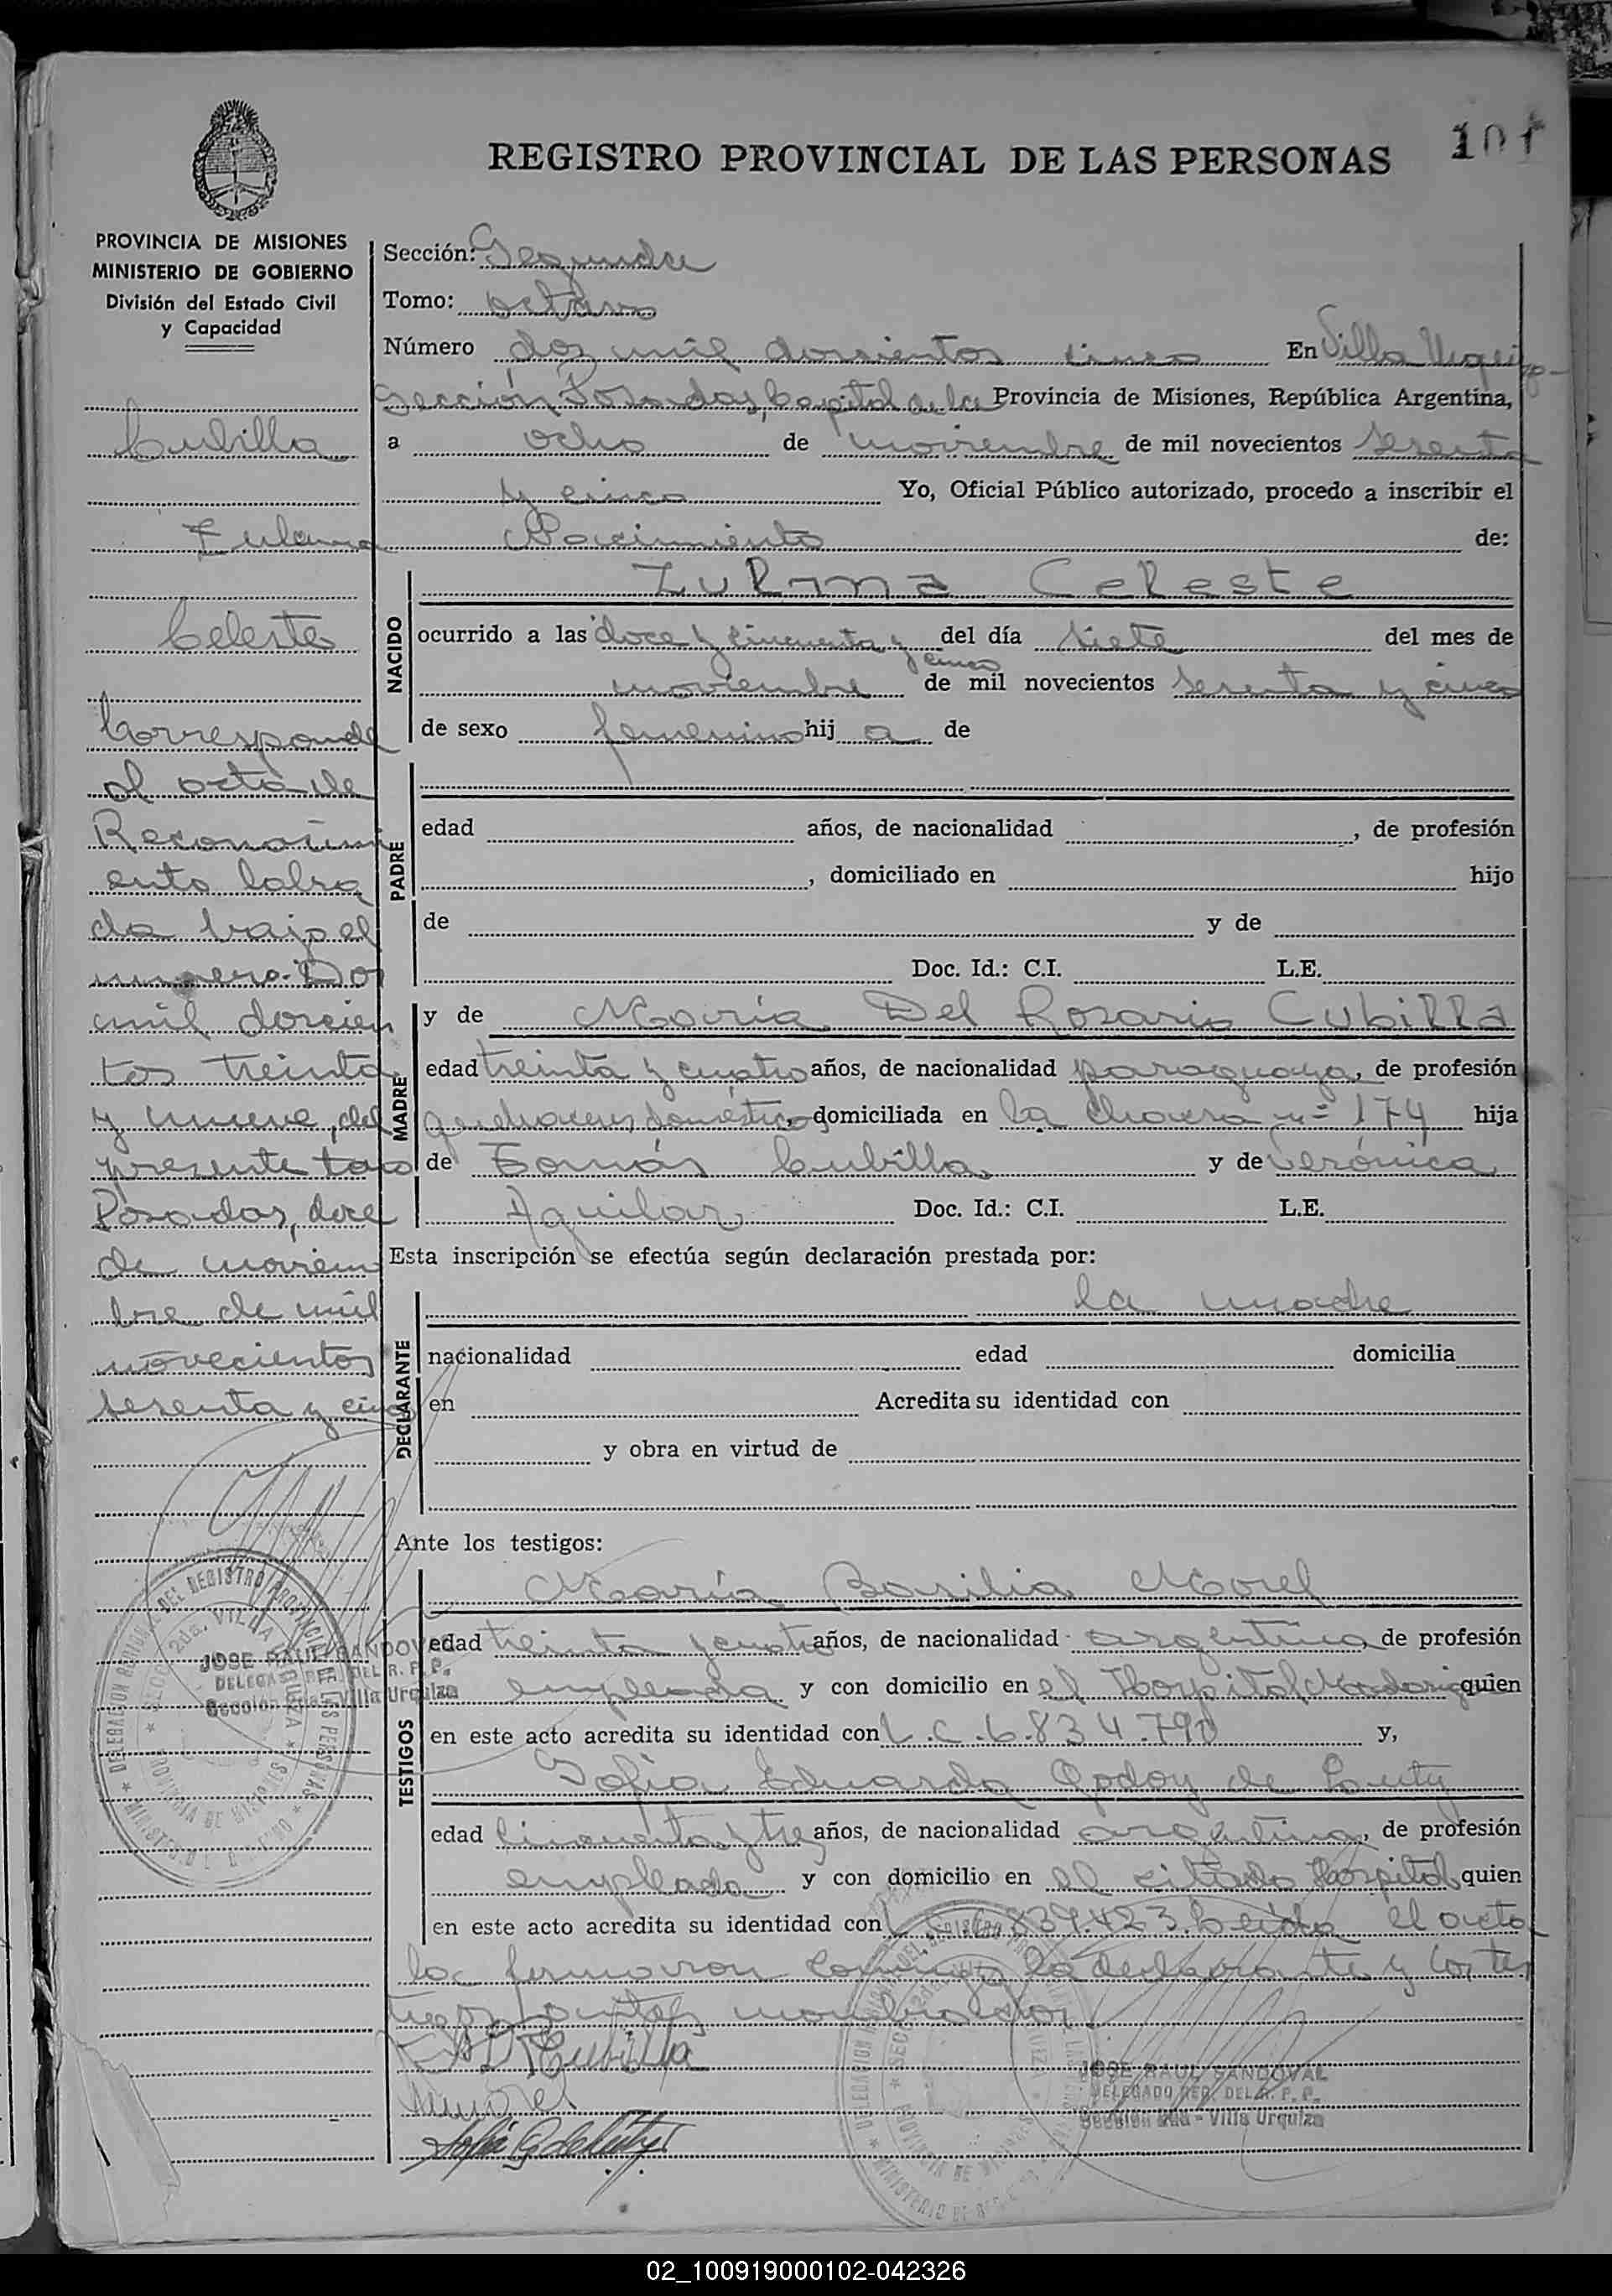 REGISTRO PROVINCIAL DE LAS PERSONAS
101
PROVINCIA DE MISIONES
MINISTERIO DE GOBIERNO
División del Estado Civil
y Capacidad
Cubilla
Zulma
Celeste
Corresponde
al acta de
Reconocimi
ento labra
da bajo el
numero Dos
mil doscien
tos treinta
y nueve, del
presente tomo
Posadas, doce
de noviem
bre de mil
novecientos
sesenta y cinco
Sección: Segunda
Tomo: octavo
Número dos mil doscientos cinco En Villa Urquiza-
Sección Posadas, Capital de la Provincia de Misiones, República Argentina,
a ocho de noviembre de mil novecientos sesenta
y cinco Yo, Oficial Público autorizado, procedo a inscribir el
Nacimiento de:
NACIDO
Zulma Celeste
ocurrido a las doce y cincuenta y cinco del día siete del mes de
noviembre de mil novecientos sesenta y cinco
de sexo femenino hij a de
PADRE
edad años, de nacionalidad , de profesión
, domiciliado en hijo
de y de
Doc. Id.: C.I. L.E.
MADRE
y de María Del Rosario Cubilla
edad treinta y cuatro años, de nacionalidad paraguaya, de profesión
quehaceres domésticos domiciliada en la Chacra nº 174 hija
de Tomás Cubilla y de Verónica
Aguilar Doc. Id.: C.I. L.E.
Esta inscripción se efectúa según declaración prestada por:
DECLARANTE
la madre
nacionalidad edad domicilia
en Acredita su identidad con
y obra en virtud de
Ante los testigos:
TESTIGOS
María Basilia Morel
edad treinta y cuatro años, de nacionalidad argentina, de profesión
empleada y con domicilio en el Hospital Madariaga quien
en este acto acredita su identidad con L.C.6.834.790 y,
Sofia Eduarda Godoy de Luty
edad cincuenta y tres años, de nacionalidad argentina, de profesión
empleada y con domicilio en el citado Hospital quien
en este acto acredita su identidad con 839.423. Leída el acta
la firmaron conmigo la declarante y los tes
tigos antes nombrados.
Cubilla
Sofia G de Luty
DELEGACION REGIONAL DEL REGISTRO PROVINCIAL DE LAS PERSONAS
SECC. 2da. VILLA URQUIZA
PROVINCIA DE MISIONES
JOSE RAUL SANDOVAL
DELEGADO REG. DEL R. P. P.
Sección 2da - Villa Urquiza
JOSE RAUL SANDOVAL
DELEGADO REG. DEL R. P. P.
Sección 2da - Villa Urquiza
02_100919000102-042326